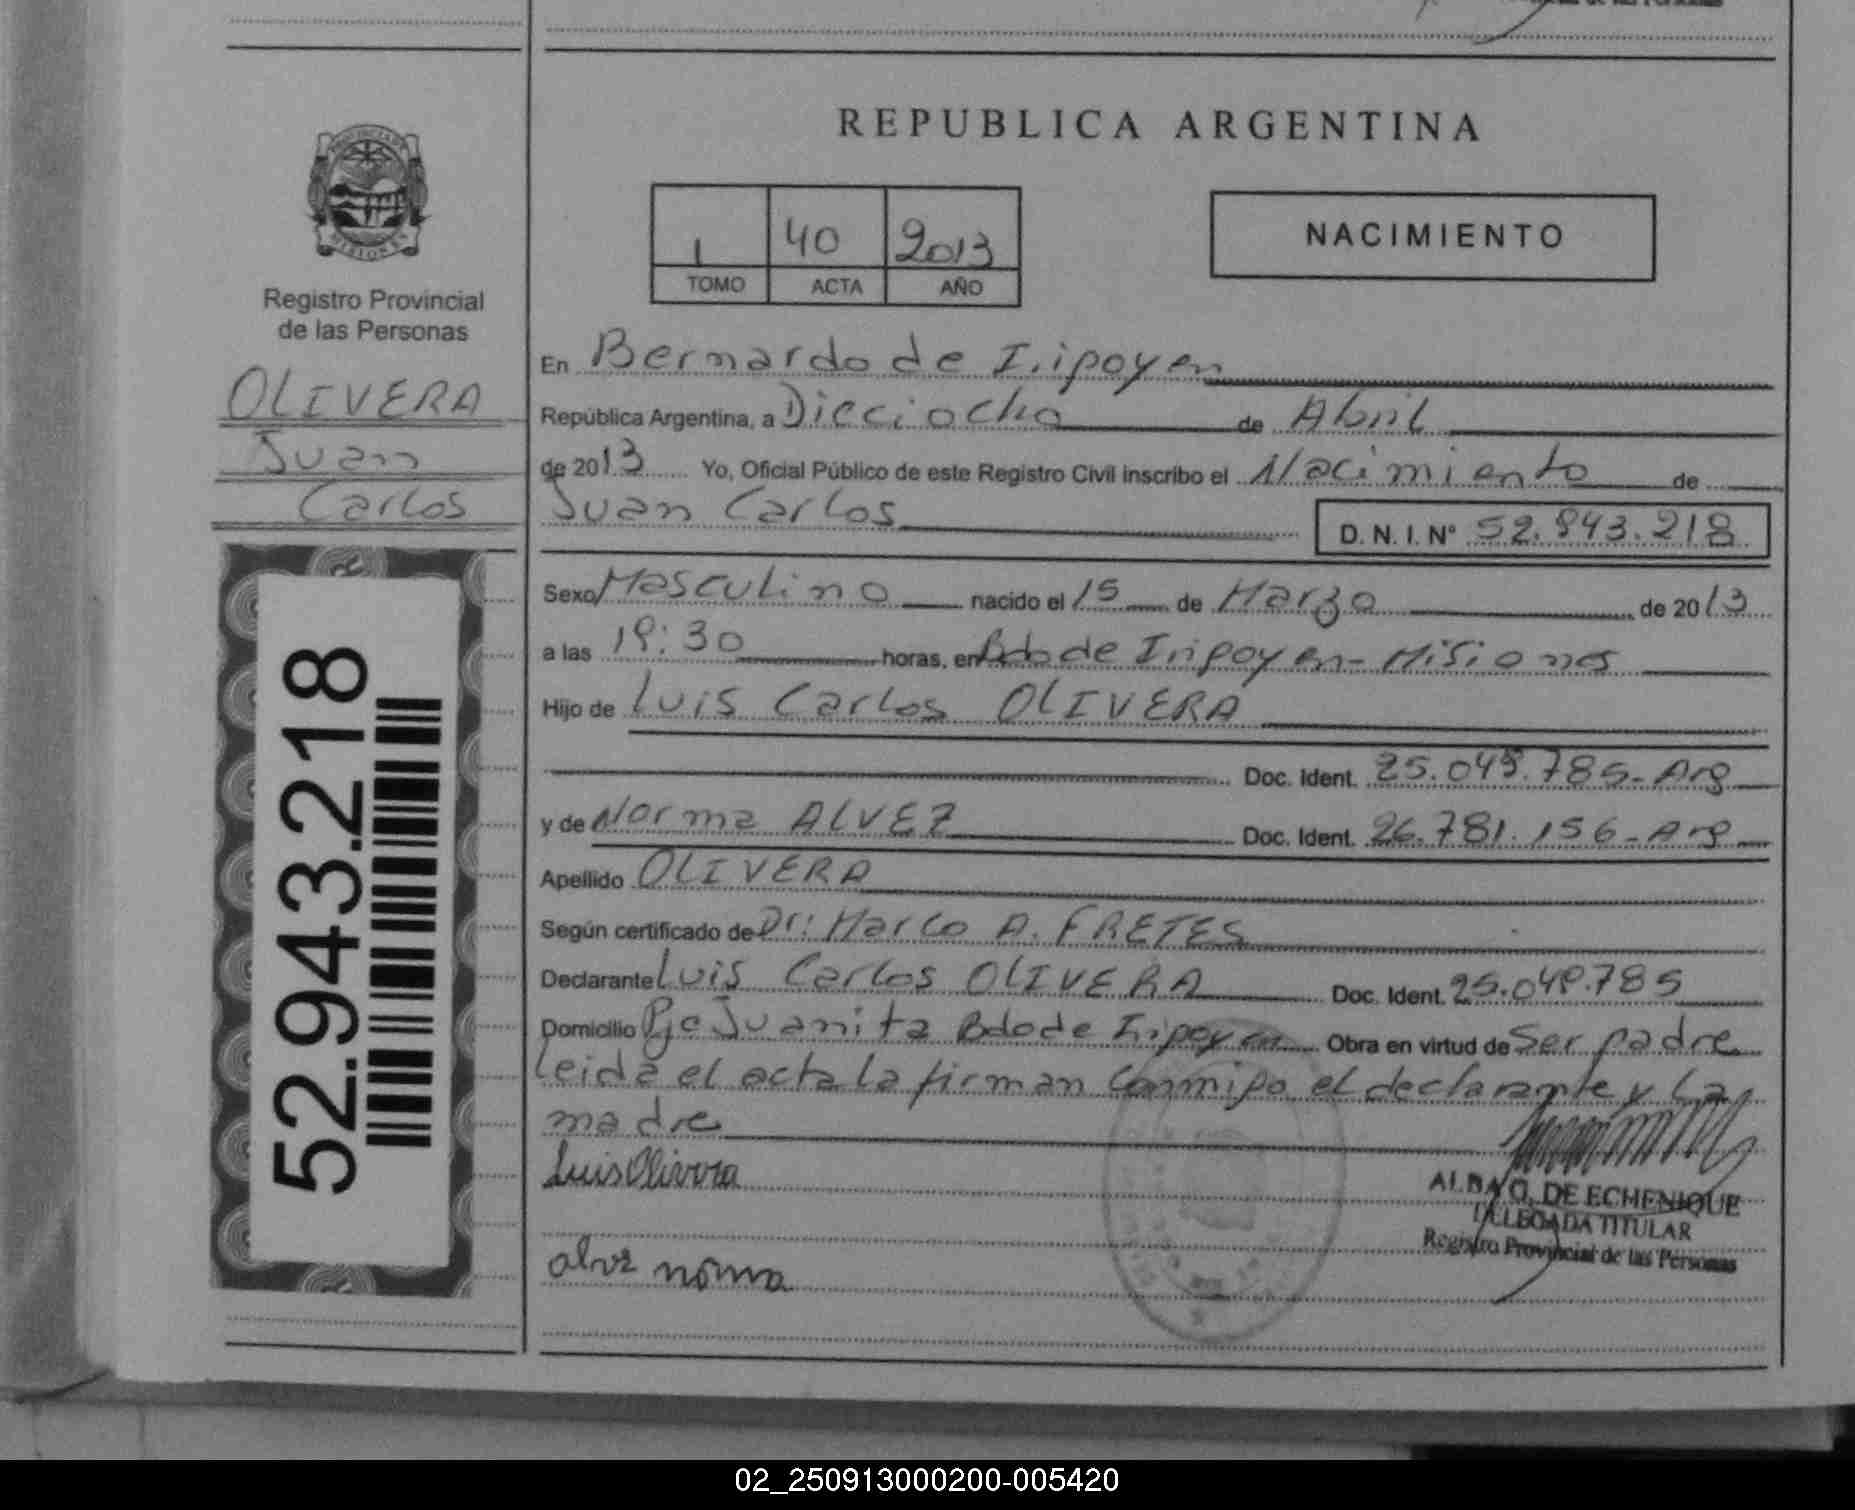 REPUBLICA ARGENTINA
1 40 2013
TOMO ACTA AÑO
NACIMIENTO
Registro Provincial
de las Personas
OLIVERA
Juan
Carlos
52.943.218
En Bernardo de Irigoyen
República Argentina, a Dieciocho de Abril
de 2013 Yo, Oficial Público de este Registro Civil inscribo el Nacimiento de
Juan Carlos D. N. I. Nº 52.943.218
Sexo Masculino nacido el 15 de Marzo de 2013
a las 19:30 horas, en Bdo de Irigoyen - Misiones
Hijo de Luis Carlos OLIVERA
Doc. Ident. 25.049.785 - Arg
y de Norma ALVEZ Doc. Ident. 26.781.156 - Arg
Apellido OLIVERA
Según certificado de Dr: Marco A. FRETES
Declarante Luis Carlos OLIVERA Doc. Ident. 25.049.785
Domicilio Pje Juanita Bdo de Irigoyen Obra en virtud de Ser padre
leida el acta la firman conmigo el declarante y la
madre
Luis Olivera
ALBA G. DE ECHENIQUE
DELEGADA TITULAR
Registro Provincial de las Personas
alvez norma
02_250913000200-005420